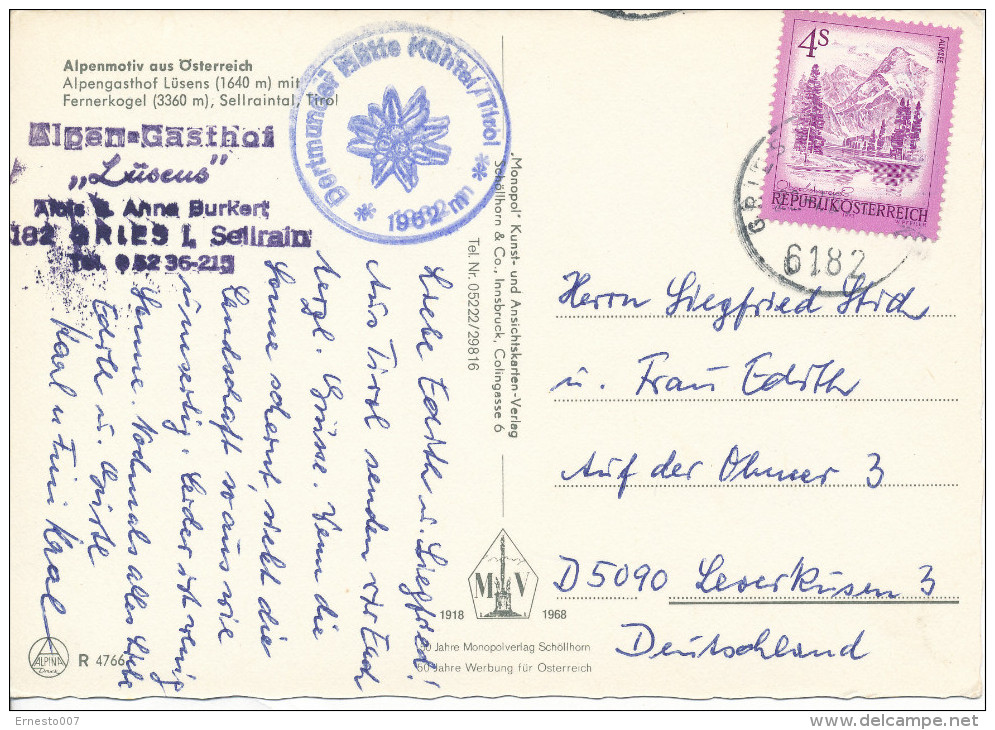 Alpenmotiv aus Österreich
Alpengasthof Lüsens (1640 m) mit
Fernerkogel (3360 m), Sellraintal, Tirol
Alpen-Gasthof
„Lüsens"
Alois & Anna Burkert
182 GRIES i. Sellrain
Tel. 0 52 36-215
Dortmunder Hütte Kühtai/Tirol
* 1962 m *
4S
ALMSEE
REPUBLIK ÖSTERREICH
GRIES
6182
„Monopol" Kunst- und Ansichtskarten-Verlag
Schöllhorn & Co., Innsbruck, Colingasse 6
Tel. Nr. 05222/29816
Liebe Edith u. Siegfried!
Aus Tirol senden wir Euch
herzl. Grüsse. Wenn die
Sonne scheint, sieht die
Landschaft so aus wie
umseitig. Leider ist wenig
Sonne. Nochmals alles Liebe
Edith u.
Karl u Fini Kral
Herrn Siegfried Stich
u. Frau Edith
Auf der Ohmer 3
D 5090 Leverkusen 3
Deutschland
M V
1918 1968
50 Jahre Monopolverlag Schöllhorn
50 Jahre Werbung für Österreich
ALPINA
Druck
R 4766
Ernesto007
delcampe.net